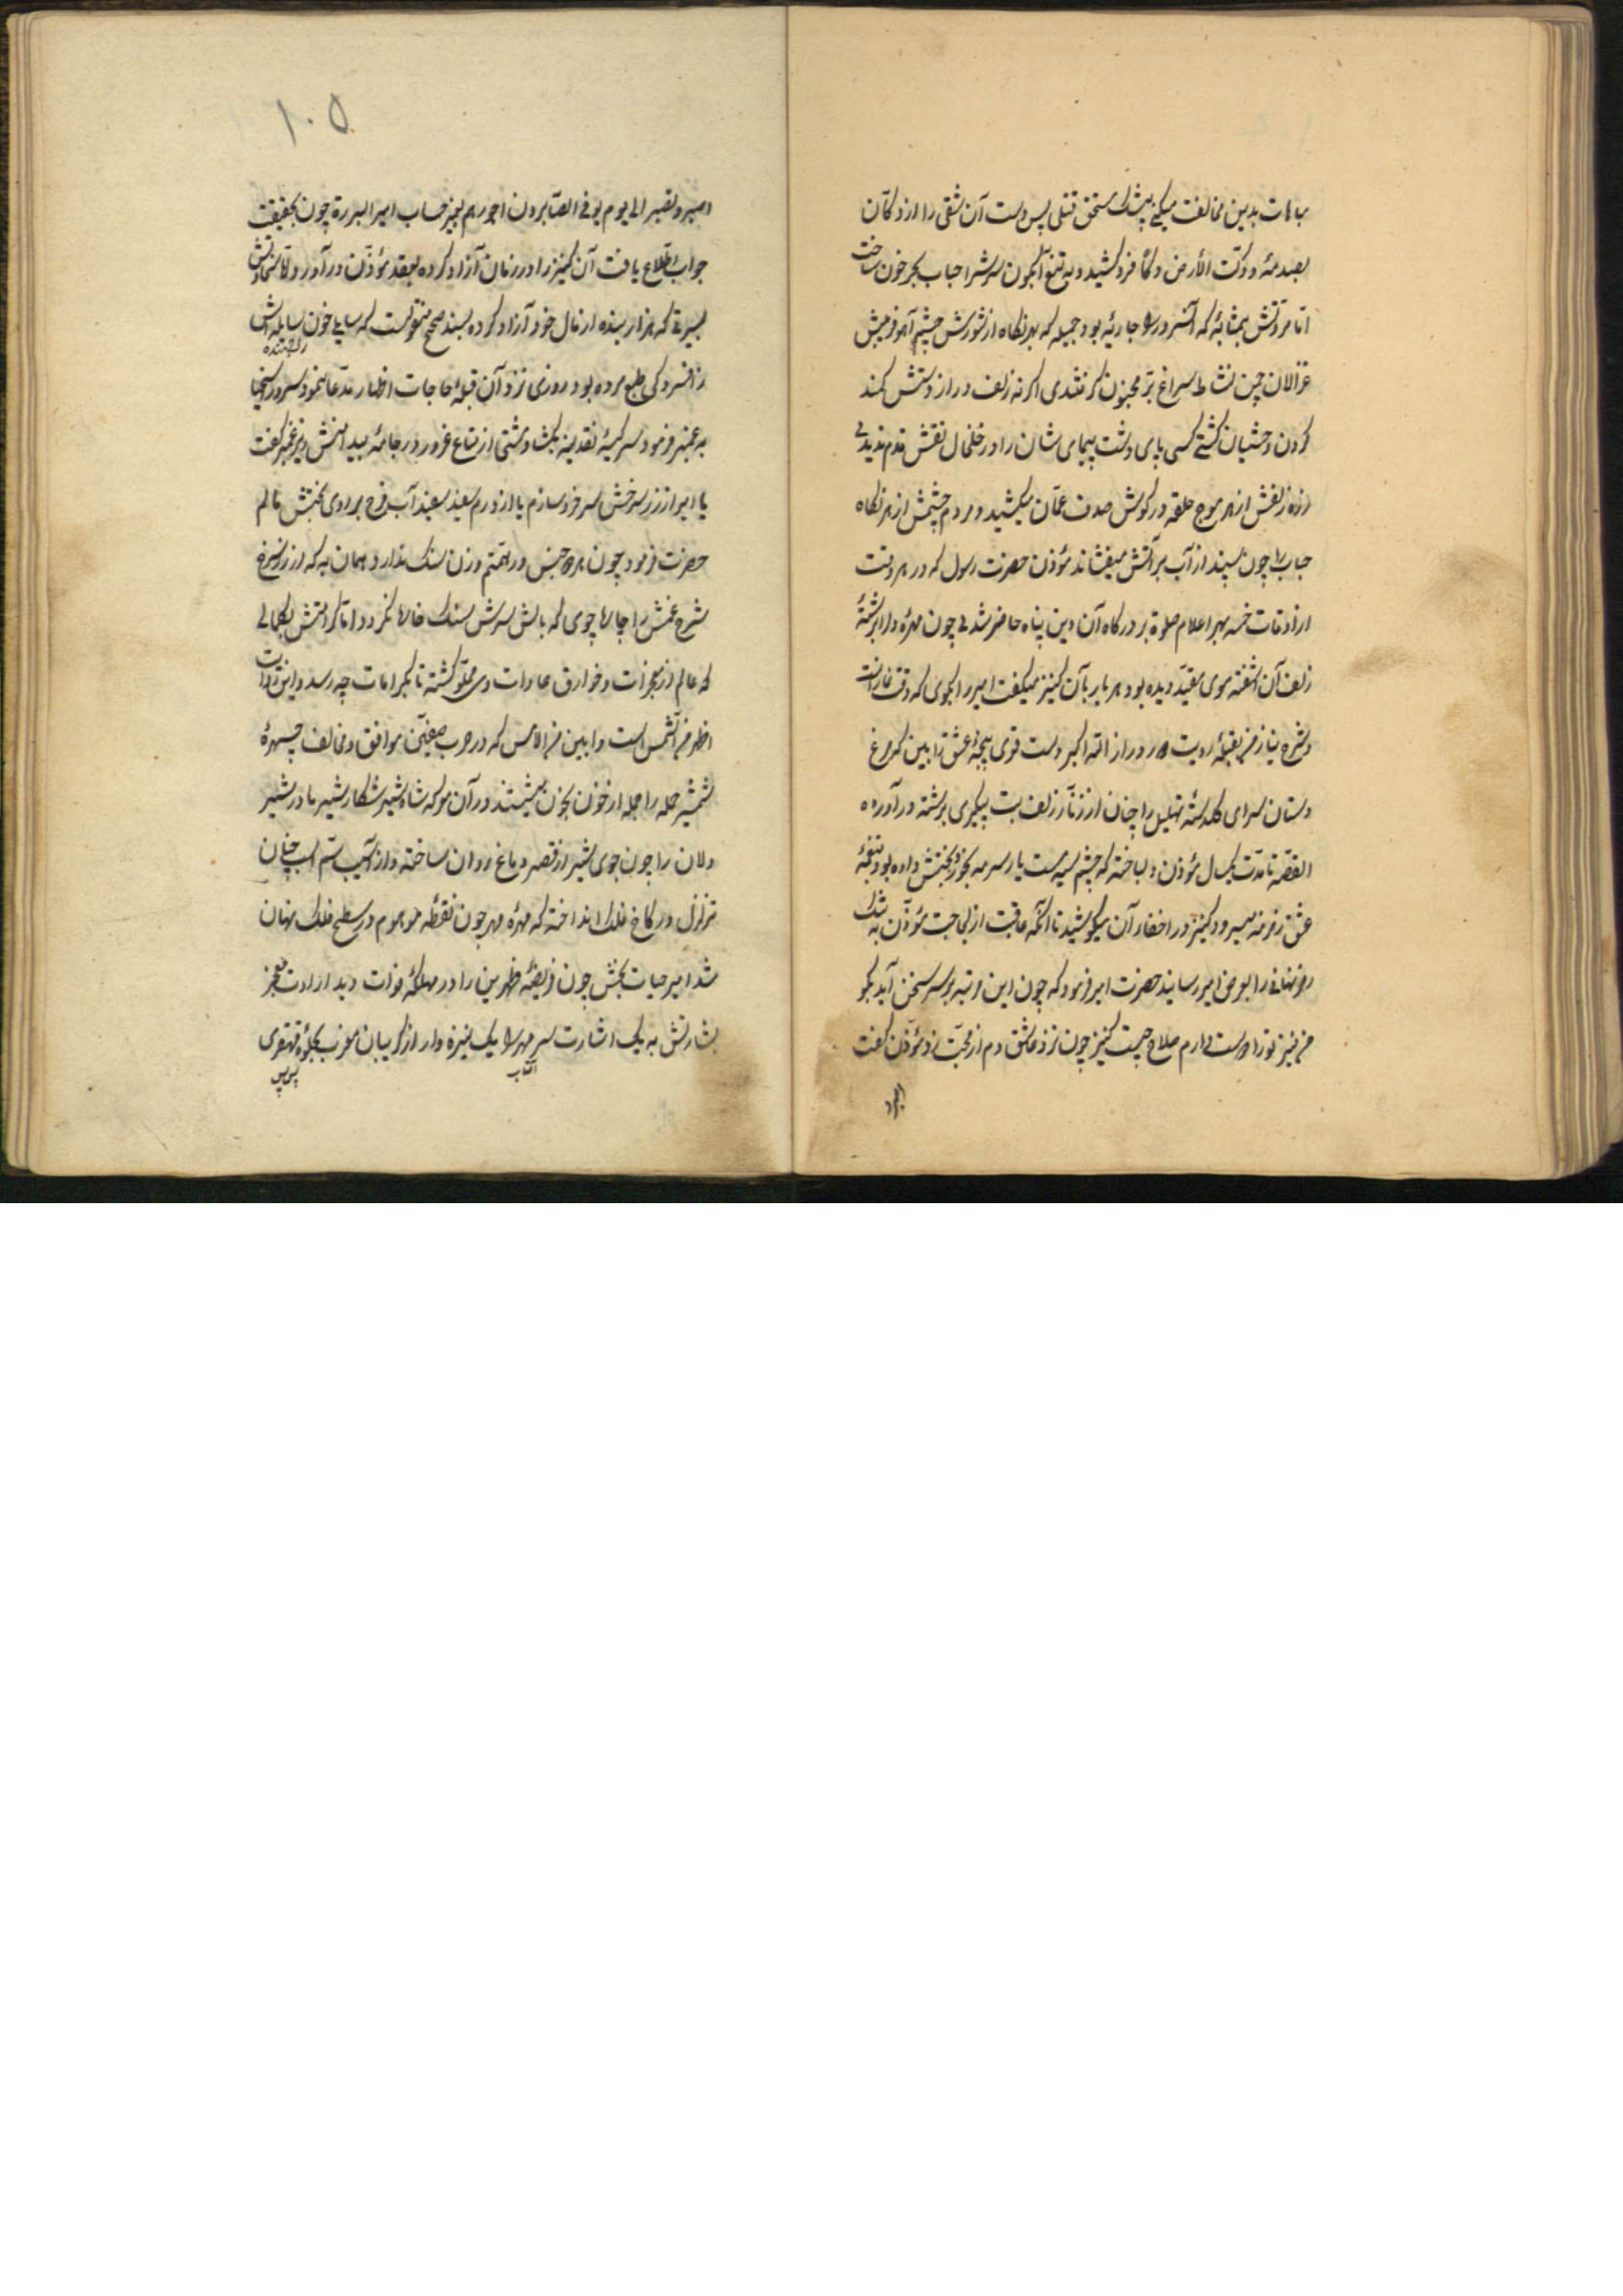 مباهات بدین مخالفت میکنی بیشک مستحق قتلی پس دست آن شقی را از دکان
بصدمهٔ و دکت الأرض دکا فرو کشید و به تیغ آبگون سرش را حباب بحر خون ساخت
اما مروتش بمثابهٔ که آنسرور را جاریهٔ بود جمیله که بهر نگاه از شورش چشم آهو فریبش
غزالان چین نشاط سراغ مجنون گرفتندی اگر نه زلف دراز دستش کمند
گردن وحشیان گشتی کسی پای دشت پیمای شان را در خلخال نقش قدم ندیدی
زلفش از هر موج حلقه در گوش صدف عمان میکشید و مردم چشمش از هر نگاه
حباب را چون سپند از آب بر آتش میفشاند مؤذن حضرت رسول که در هر وقت
از اوقات خمسه بهر اعلام صلوة بر درگاه آن دین پناه حاضر شدی چون مهره را برشتهٔ
زلف آن آشفته موی مقید دیده بود هر بار بآن کنیز میگفت امیر را بگوی که وقت نماز است
و شرح نیاز من بقبلهٔ رویت دور و دراز الله اکبر دست قوی پنجهٔ عشق را ببین که مرغ
دستان سرای گلدستهٔ تهلیل را چنان از زنار زلف بت پیکری برشته در آورده
القصه تا مدت یکسال مؤذن دلباخته که چشم سیه مست یار سرمه بخورد بختش داده بود بنغمهٔ
عشق زمزمه میسرود و کنیز در اخفاء آن میکوشید تا آنکه عاقبت از لجاجت مؤذن به تنگ
راز نهانی را بعرض امیر رسانید حضرت امیر فرمود که چون این مرتبه بر سر سخن آید بگو
من نیز تو را دوست میدارم صلاح چیست کنیز چون نزد عاشق دم از محبت زد مؤذن گفت
۱۰۵
اصبر و تصبر الی یوم یوفی الصابرون اجورهم بغیر حساب امیر البررة چون بحقیقت
جواب اطلاع یافت آن کنیز را در زمان آزاد کرده بعقد مؤذن در آورد و اما سخاوتش
بمرتبهٔ که هزار بنده از مال خود آزاد کرده بسند صحیح منقولست که سایلی خون سایلهاش
از افسردگی طبع مرده بود روزی نزد آن قبلهٔ حاجات اظهار مدعا نمود سرور اسخیا
به قنبر فرمود سر کیسهٔ نقدینه بگشا و مشتی از متاع غرور در جامهٔ بید ریزش قنبر گفت
یا امیر از زر سرخش سرخرو سازم یا از درم سفید سفید آب فرح بر روی بختش مالم
حضرت فرمود چون هر دو جنس در همتم وزن سنگ ندارد همان به که از زر سرخ
شرح غمش را چارها جوی که بالش سرش سنگ خارا نگردد و اما کرامتش بکمالی
که عالم از معجزات و خوارق عادات وی مملو گشته تا بکرامات چه رسد و این روایت
اظهر من الشمس است و ابین من الامس که در حرب صفین موافق و مخالف چهرهٔ
شمشیر حمله را جمله از خون بخون میشستند در آن معرکه شاه شیر شکار شیر مادر شیر
دلان را چون جوی شیر از قصر دماغ روان ساخته و از آسیب سم اسب چنان
تزلزل در کاخ فلک انداخته که مهرهٔ مهر چون نقطهٔ موهوم در سطح فلک نهان
شد امیر حیات بخش چون فریضهٔ ظهرین را در مهلکهٔ فوات دید ارادت معجز
بشارتش به یک اشارت سر مهر را یک نیزه وار از گریبان مغرب بجلوهٔ قهقری
آفتاب
پس